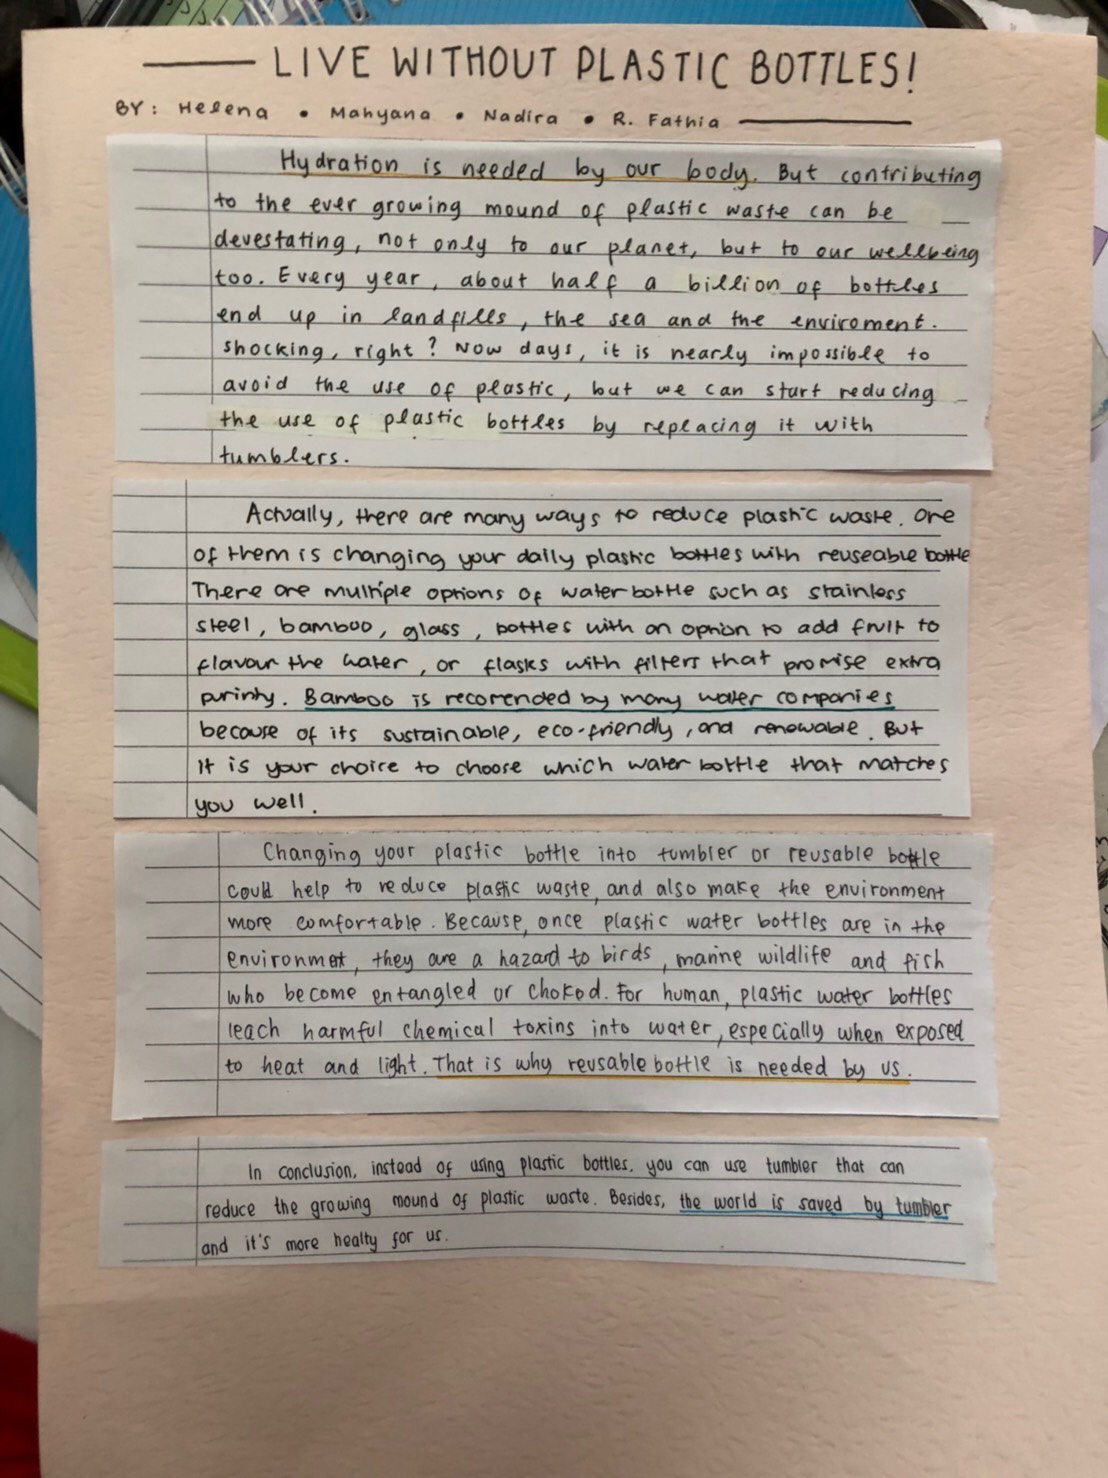 LIVE WITHOUT PLASTIC BOTTLES!
BY: Helena • Mahyana • Nadira • R. Fathia
Hydration is needed by our body. But contributing
to the ever growing mound of plastic waste can be
devestating, not only to our planet, but to our wellbeing
too. Every year, about half a billion of bottles
end up in landfills, the sea and the enviroment.
shocking, right? Now days, it is nearly impossible to
avoid the use of plastic, but we can start reducing
the use of plastic bottles by replacing it with
tumblers.
Actually, there are many ways to reduce plastic waste. One
of them is changing your daily plastic bottles with reuseable bottle
There are multiple options of water bottle such as stainless
steel, bamboo, glass, bottles with an option to add fruit to
flavour the water, or flasks with filters that promise extra
purinty. Bamboo is recomended by many water companies
because of its sustainable, eco-friendly, and renewable. But
it is your choice to choose which water bottle that matches
you well.
Changing your plastic bottle into tumbler or reusable bottle
could help to reduce plastic waste, and also make the environment
more comfortable. Because, once plastic water bottles are in the
environmet, they are a hazard to birds, marine wildlife and fish
who become entangled or choked. For human, plastic water bottles
leach harmful chemical toxins into water, especially when exposed
to heat and light. That is why reusable bottle is needed by us.
In conclusion, instead of using plastic bottles, you can use tumbler that can
reduce the growing mound of plastic waste. Besides, the world is saved by tumbler
and it's more healty for us.